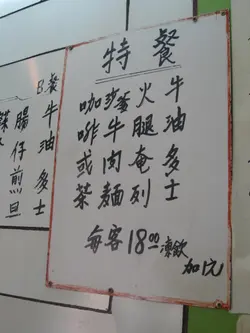 特餐
牛油多士
火腿奄列
沙爹牛肉麵
咖啡或茶
每客18.00
凍飲
B餐
牛油多士
腸仔煎旦